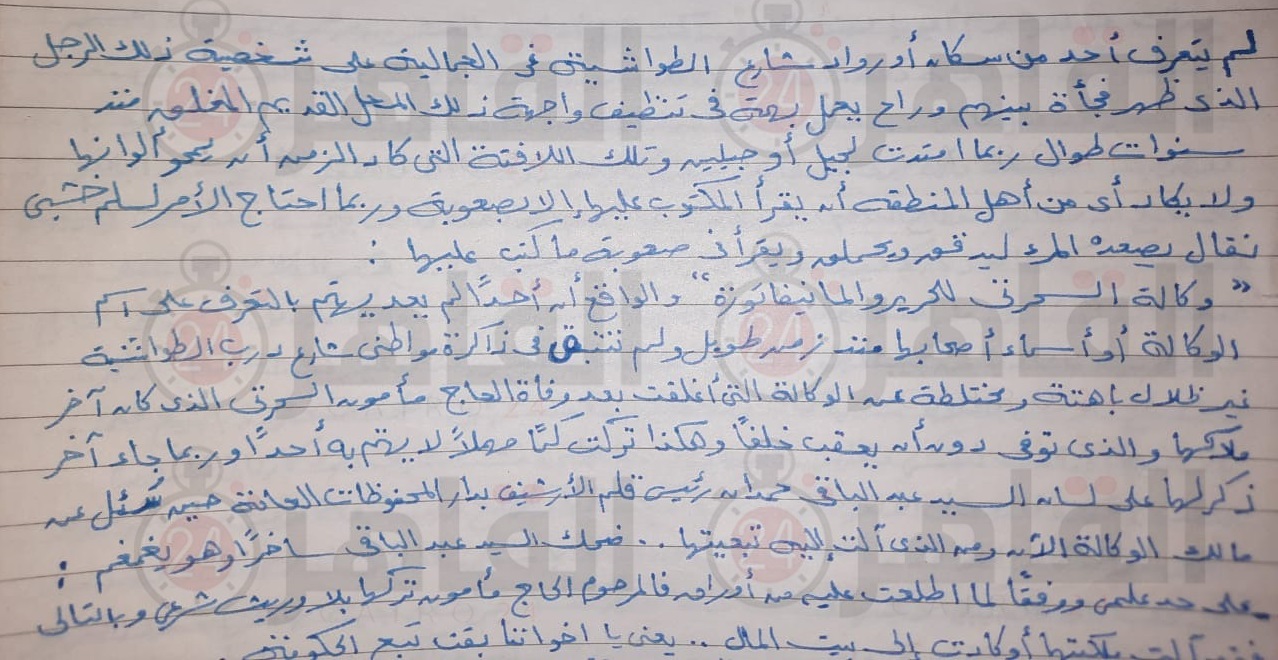 لم يتعرف أحد من سكان أو رواد شارع الطواشية فى الجمالية على شخصية ذلك الرجل
الذى ظهر فجأة بينهم وراح يعمل بهمة فى تنظيف واجهة ذلك المحل القديم المغلق منذ
سنوات طوال ربما امتدت لجيل أو جيلين وتلك اللافتة التى كاد الزمن أن يمحو ألوانها
ولا يكاد أى من أهل المنطقة أن يقرأ المكتوب عليها إلا بصعوبة وربما احتاج الأمر لسلم خشبى
نقال يصعده المرء ليدقق ويحملق ويقرأ فى صعوبة ما كتب عليها :
" وكالة السحرتى للحرير والمانيفاتورة " والواقع أن أحدًا لم يعد يهتم بالتعرف على اسم
الوكالة أو أسماء أصحابها منذ زمن طويل ولم تتبق فى ذاكرة مواطنى شارع درب الطواشية
غير ظلال باهتة ومختلطة عن الوكالة التى أغلقت بعد وفاة الحاج مأمون السحرتى الذى كان آخر
ملاكها والذى توفى دون أن يعقب خلفاً وهكذا تركت كمًا مهملاً لا يهتم به أحدًا وربما جاء آخر
ذكر لها على لسان السيد عبد الباقى حمدان رئيس قلم الأرشيف بدار المحفوظات العامة حين سُئل عن
مالك الوكالة الآن ومن الذى آلت إليه تبعيتها .. ضحك السيد عبد الباقى ساخرًا وهو يغمغم :
- على حد علمى ووفقًا لما اطلعت عليه من أوراق فالمرحوم الحاج مأمون تركها بلا وريث شرعى وبالتالى
آلت ملكيتها أو كادت إلى بيت المال .. يعنى يا اخواننا بقت تبع الحكومة
القاهرة 24